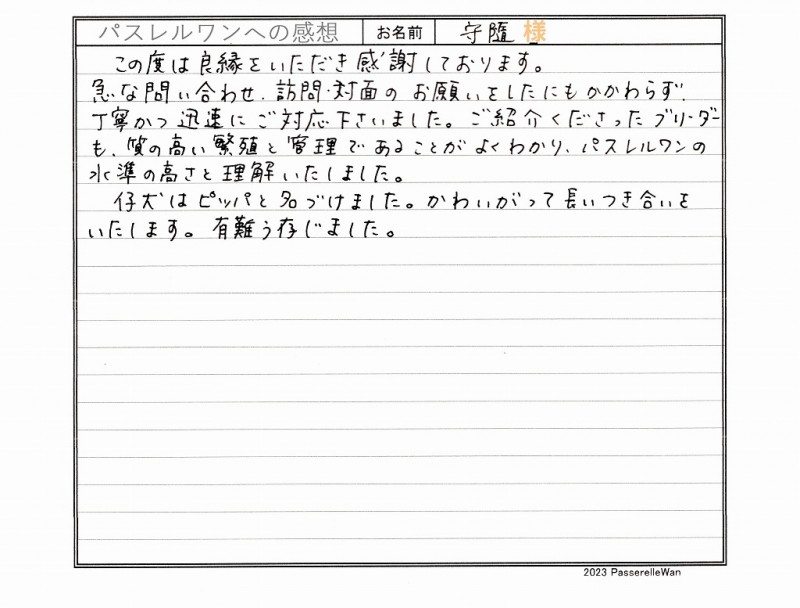 パスレルワンへの感想 お名前 守隨 様
この度は良縁をいただき感謝しております。
急な問い合わせ、訪問・対面のお願いをしたにもかかわらず、
丁寧かつ迅速にご対応下さいました。ご紹介くださったブリーダー
も、質の高い繁殖と管理であることがよくわかり、パスレルワンの
水準の高さと理解いたしました。
仔犬はピッパと名づけました。かわいがって長いつき合いを
いたします。有難う存じました。
2023 PasserelleWan